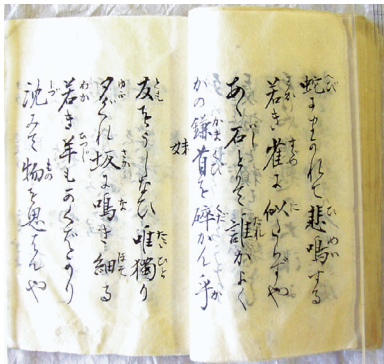 蛇にまかれて悲鳴する
若き雀に似たらずや
あゝ石とりて誰かよく
かの鎌首を碎かん乎
妹
友をうしなひ唯獨り
夕ぐれ坂に鳴き細る
若き羊もかくばかり
沈みて物を思はんや